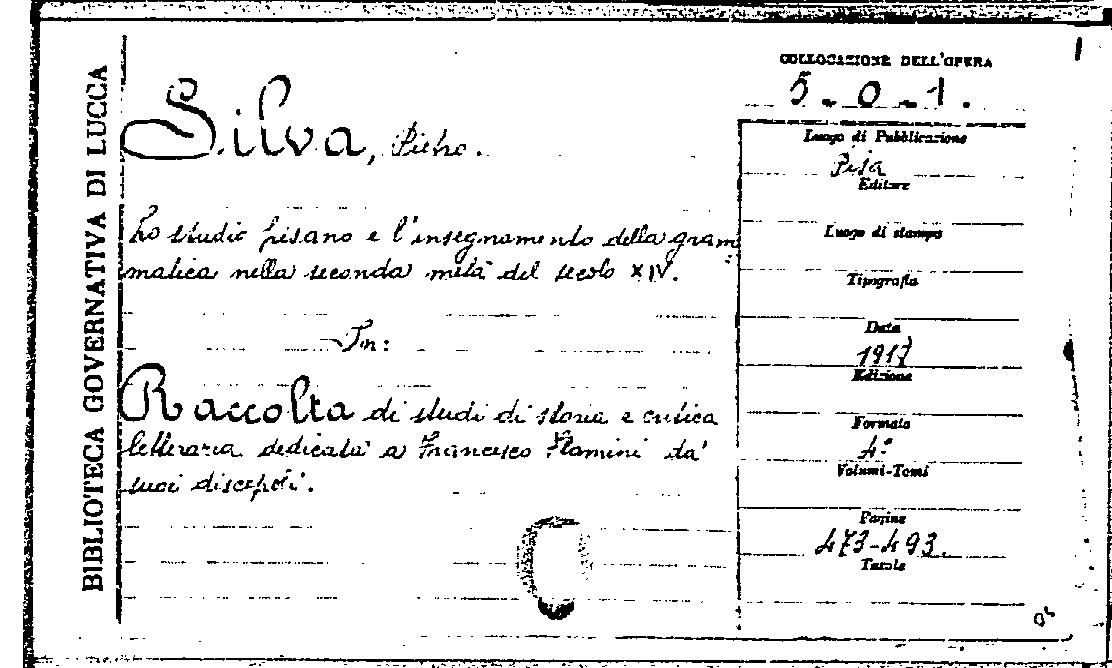 BIBLIOTECA GOVERNATIVA DI LUCCA
Silva, Pietro.
Lo studio pisano e l'insegnamento della gram
matica nella seconda metà del secolo XIV.
In:
Raccolta di studi di storia e critica
letteraria dedicata a Francesco Flamini da'
suoi discepoli.
COLLOCAZIONE DELL'OPERA
5.0.1.
Luogo di Pubblicazione
Pisa
Editore
Luogo di stampa
Tipografia
Data
1917
Edizione
Formato
4°
Volumi-Tomi
Pagine
473-493.
Tavole